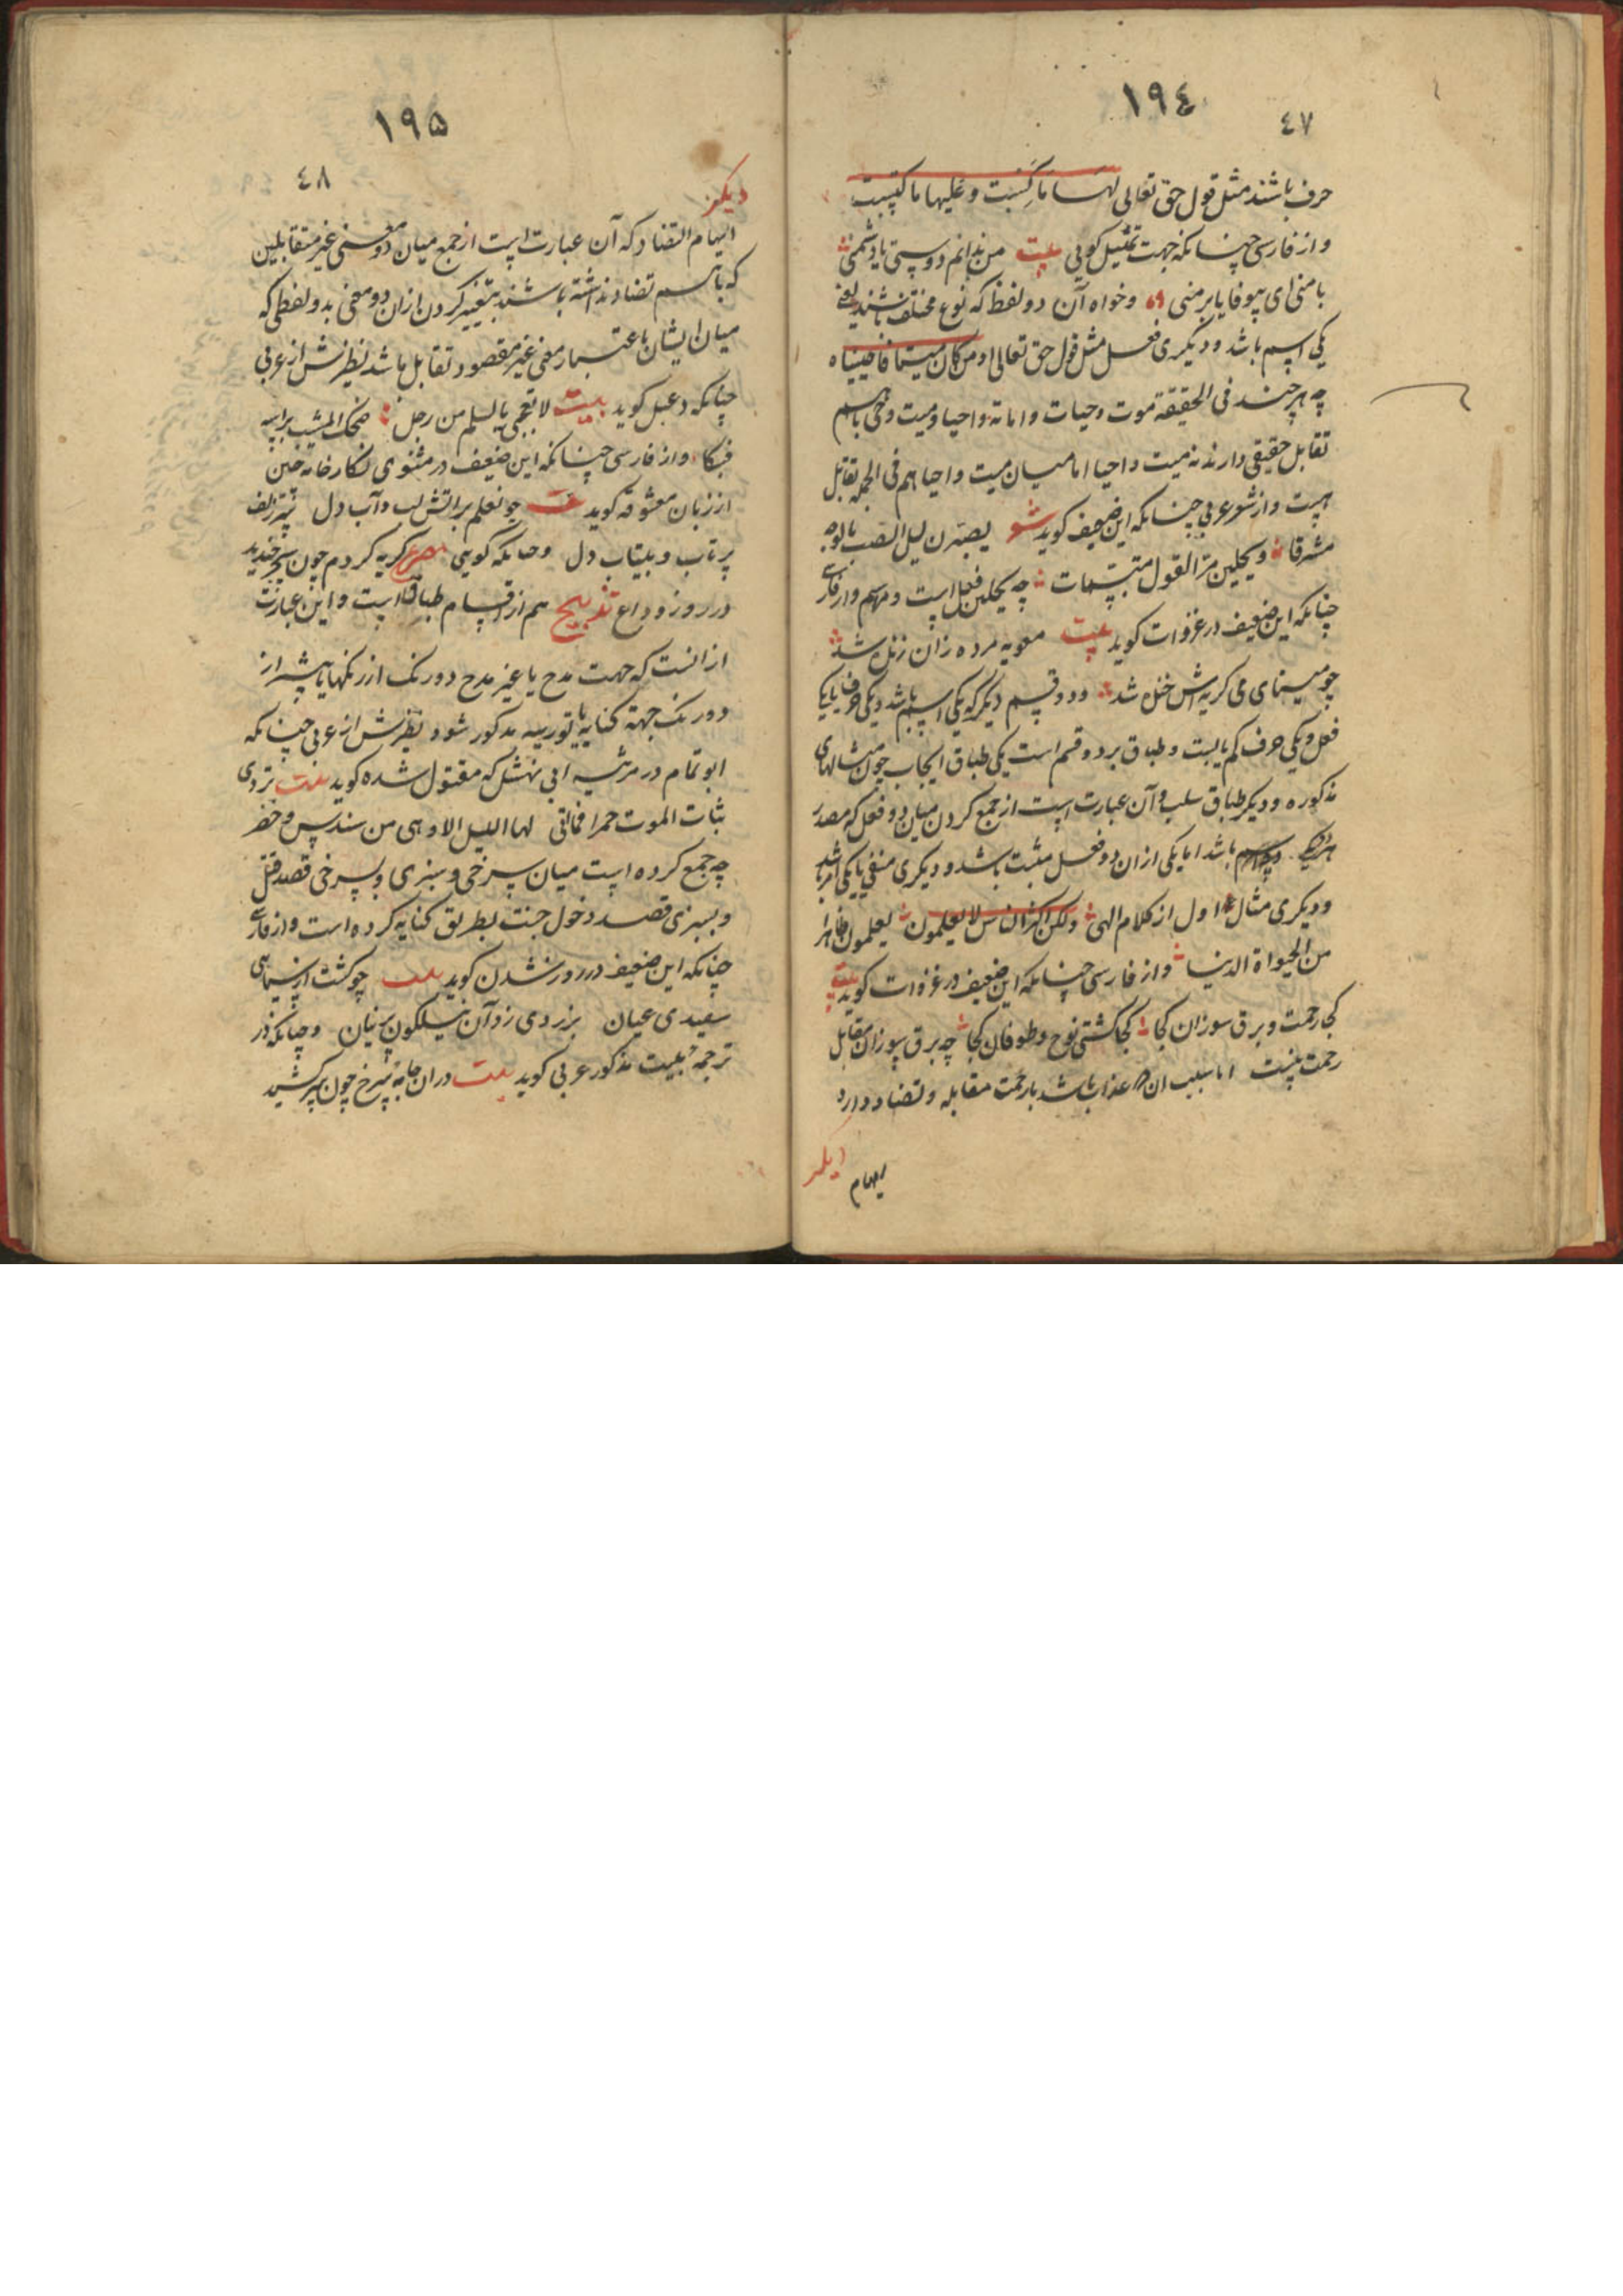 ١٩٤
٤٧
حرف باشند مثل قول حق تعالی لها ما کسبت و علیها ما اکتسبت
و از فارسی چنانکه جهت تمثیل کویی بیت من ندانم دوستی یا دشمنی
با منی ای بیوفا یا بر منی و خواه آن دو لفظ که نوع مختلف باشند یعنی
یکی اسم باشد و دیکری فعل مثل قول حق تعالی او من کان میتا فاحییناه
چه هر چند فی الحقیقة موت و حیات و اماته و احیا و میت و حی باهم
تقابل حقیقی دارند نه میت و احیا اما میان میت و احیا هم فی الجمله تقابل
هست و از شعر عربی چنانکه این ضعیف کوید شعر یصبرن لیل الصب بالوجه
مشرقا و یحلین مر القول متبسمات چه یحلین فعل است و مر اسم و از فارسی
چنانکه این ضعیف در غزوات کوید بیت مرده زان زنده شد
چو مینای می کریه‌اش خنده شد و دو قسم دیکر که یکی اسم باشد و یکی حرف یا یکی
فعل و یکی حرف کم یابست و طباق بر دو قسم است یکی طباق ایجاب چون مثالهای
مذکوره و دیکر طباق سلب و آن عبارت است از جمع کردن میان دو فعل که مصدر
هر دو باشد اما یکی از آن دو فعل مثبت باشد و دیکری منفی یا یکی امر باشد
و دیکری مثال اول از کلام الهی ولکن اکثر الناس لا یعلمون یعلمون ظاهرا
من الحیواة الدنیا و از فارسی چنانکه این ضعیف در غزوات کوید بیت
کجا رحمت و برق سوزان کجا کجا کشتی نوح و طوفان کجا چه برق سوزان مقابل
رحمت نیست اما سبب آن که عذاب باشد با رحمت مقابله و تضاد دارد
دیکر
ایهام
١٩٥
٤٨
دیکر
ایهام التضاد که آن عبارت است از جمع میان دو معنی غیر متقابلین
که باهم تضاد نداشته باشند بتعبیر کردن از آن دو معنی بدو لفظی که
میان ایشان باعتبار معنی غیر مقصود تقابل باشد نظیرش از عربی
چنانکه دعبل کوید بیت لا تعجبی یا سلم من رجل ضحک المشیب براسه
فبکا و از فارسی چنانکه این ضعیف در مثنوی نکارخانه چین
از زبان معشوقه کوید بیت چو نعلم بر آتش لب و آب دل زلف
پر تاب و بیتاب دل و چنانکه کویی مصرع کریه کردم چون سحر خندید
در روز وداع تدبیج هم از اقسام طباق است و این عبارت
از آنست که جهت مدح یا غیر مدح دو رنک از رنکها یا بیشتر از
دو رنک جهة کنایه یا توریه مذکور شود نظیرش از عربی چنانکه
ابو تمام در مرثیه ابی نهشل که مقتول شده کوید بیت تردی
ثیاب الموت حمرا فما اتی لها اللیل الا و هی من سندس خضر
چه جمع کرده است میان سرخی و سبزی و بسرخی قصد قتل
و بسبزی قصد دخول جنت بطریق کنایه کرده است و از فارسی
چنانکه این ضعیف در روز شدن کوید بیت چو کشت از سیاهی
سفیدی عیان بزردی زد آن نیلکون پرنیان و چنانکه در
ترجمه بیت مذکور عربی کوید بیت در آن جامه سرخ چون سر کشید